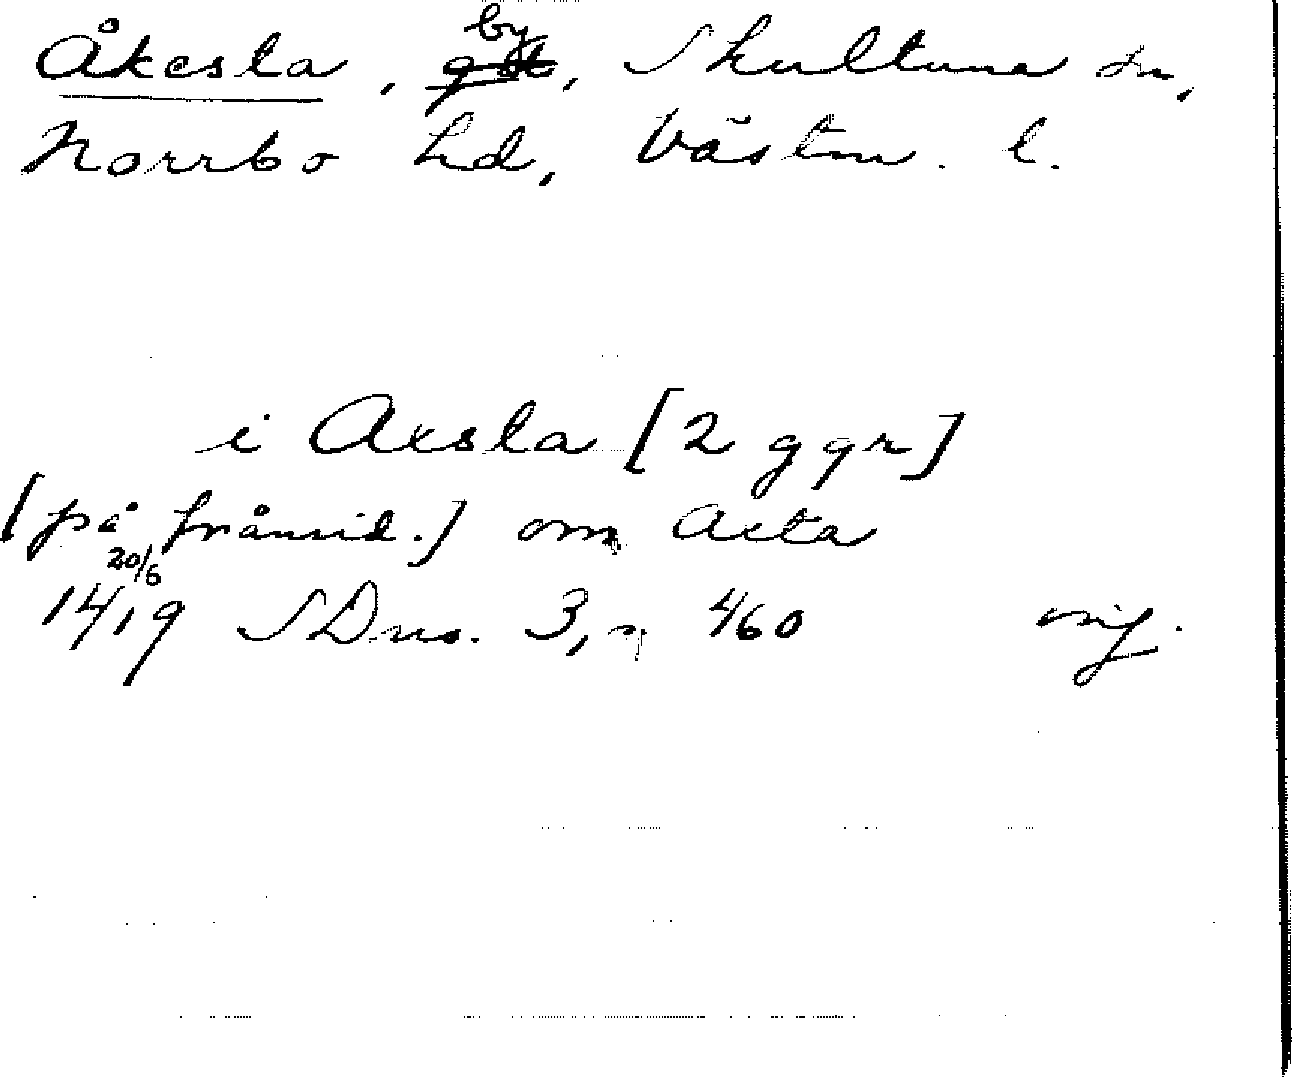 Åkesta, by, Skultuna sn,
Norrbo hd, Västm. l.
i Acsta [2 ggr]
[på frånsid.] om Acta
20/6
1419 SDns. 3, s 460 orig.